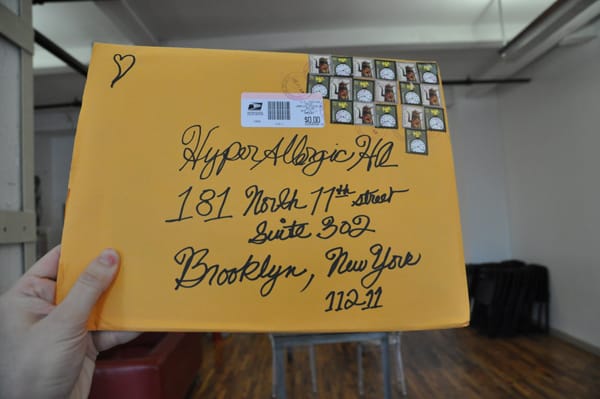 $0.00
HyperAllergic HQ
181 North 11th street
Suite 302
Brooklyn, New York
11211